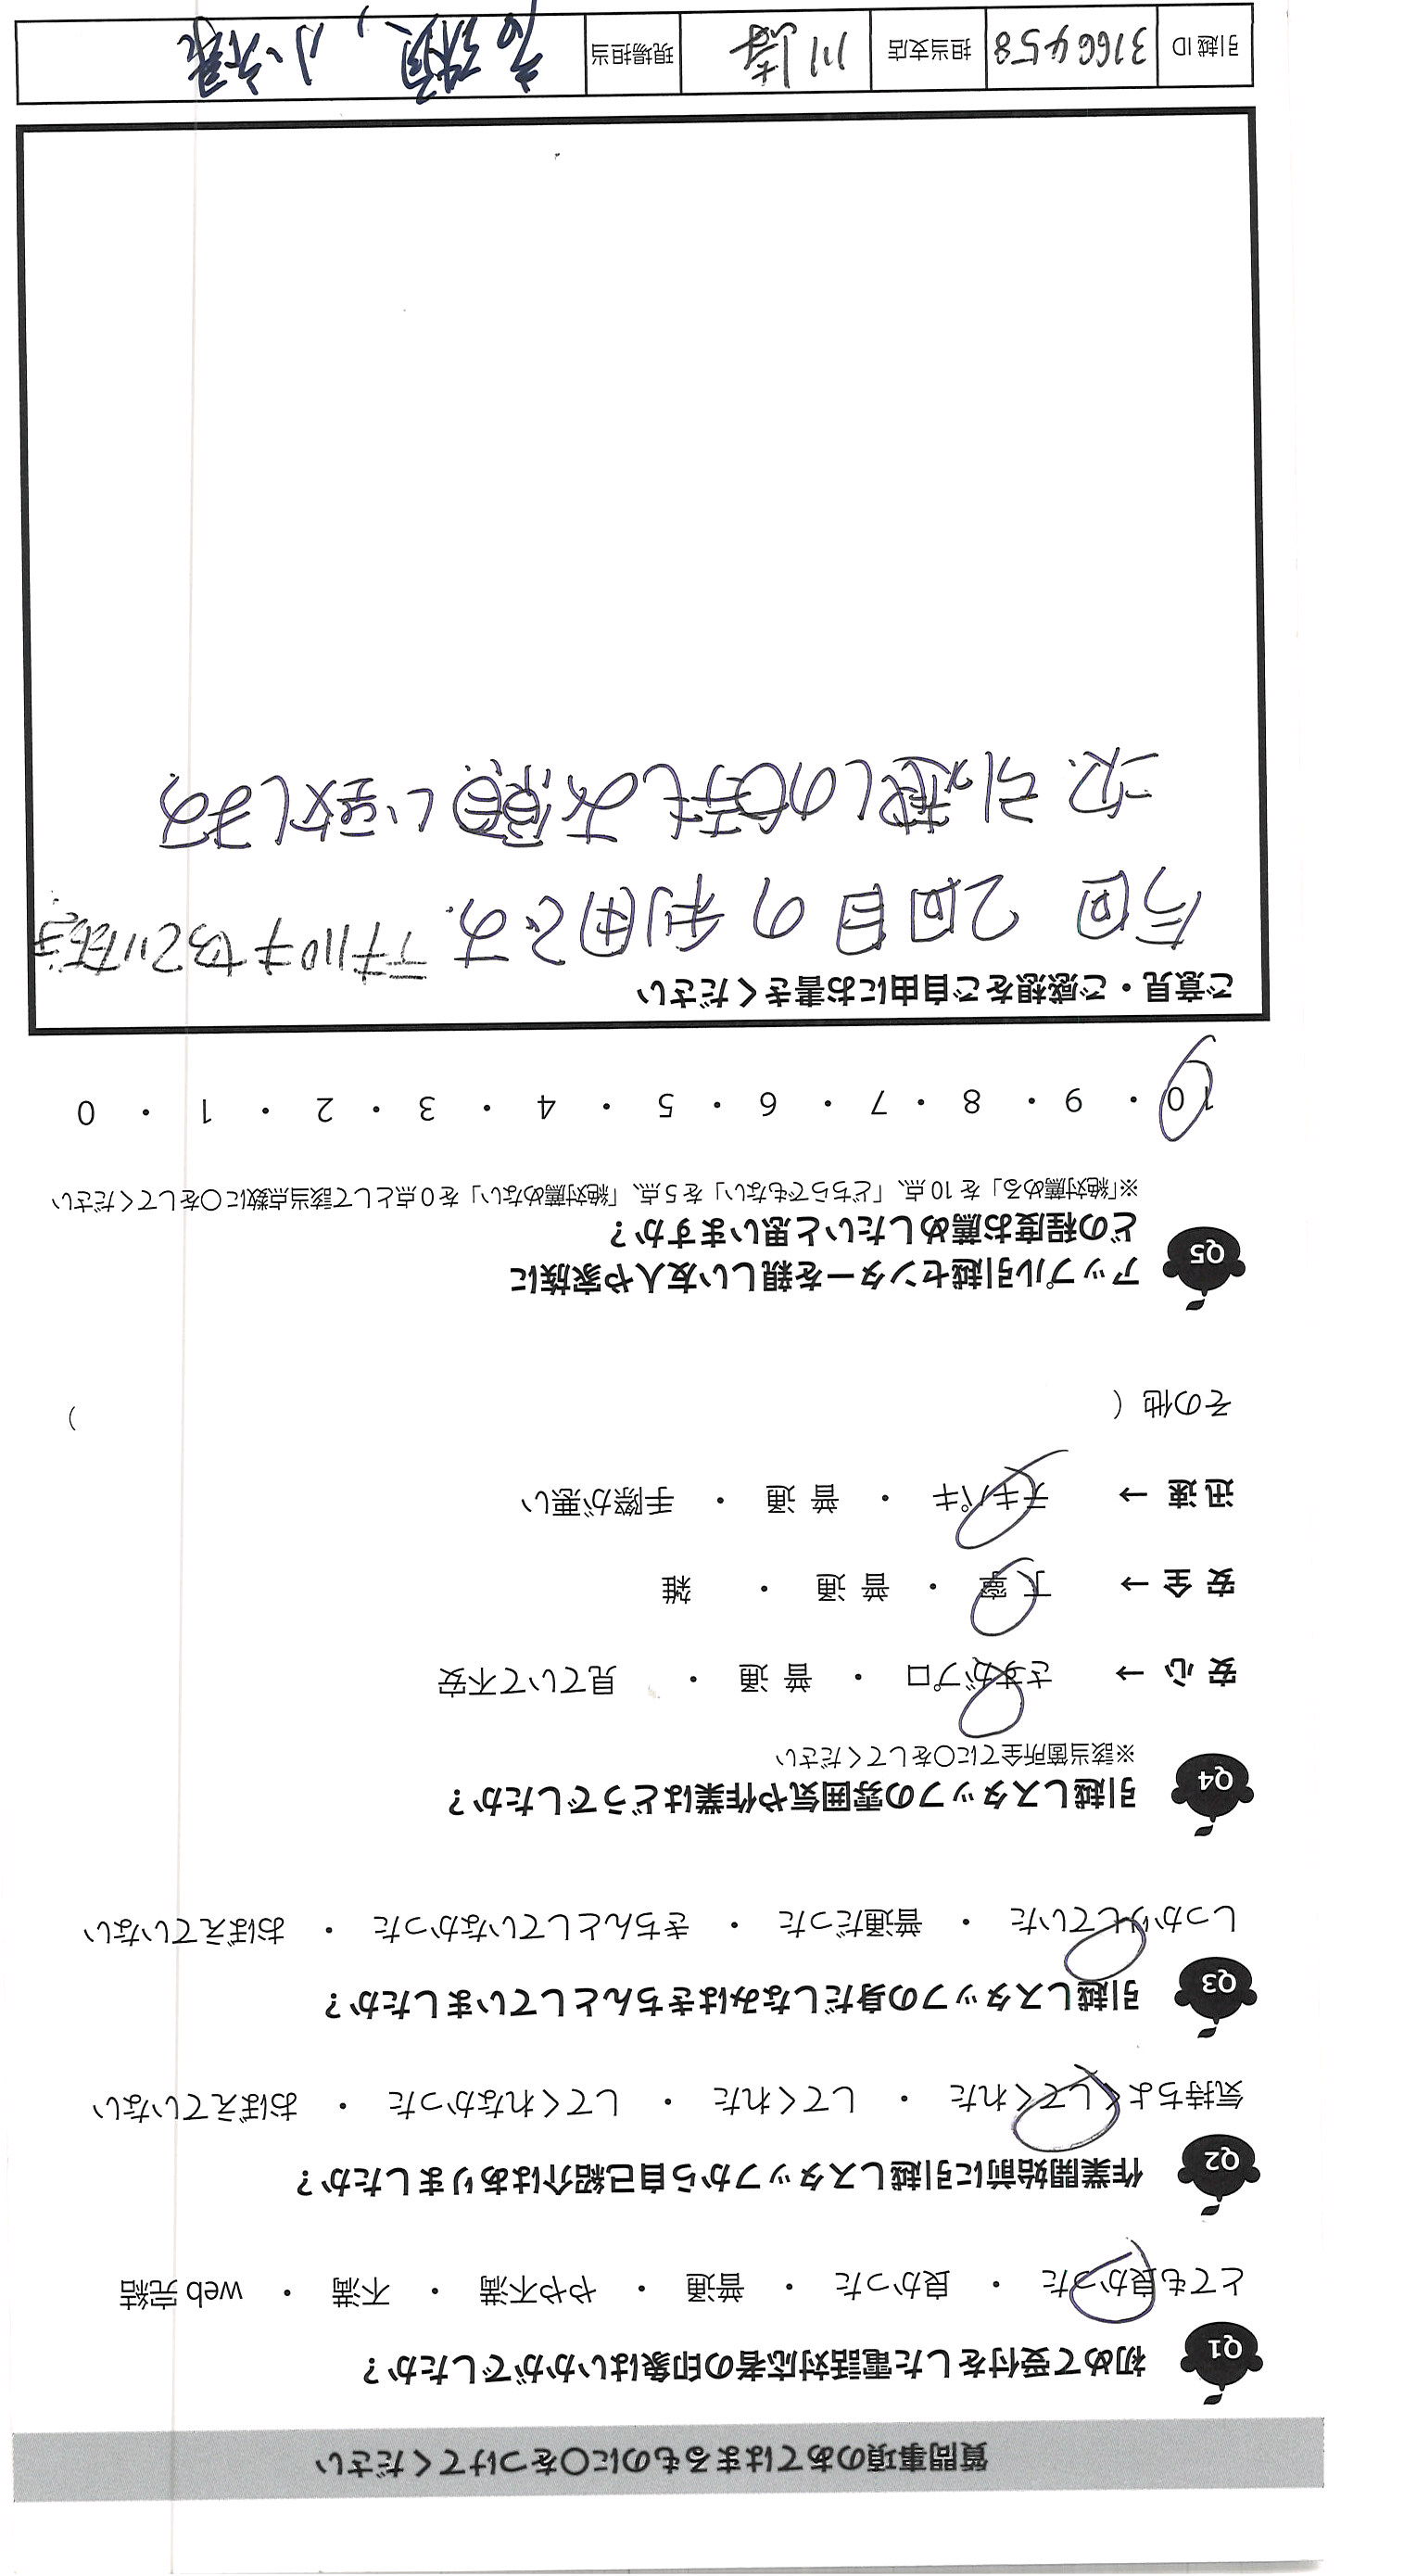 質問事項のあてはまるものに〇をつけてください
Q1 初めて受付をした電話対応者の印象はいかがでしたか？
とても良かった ・ 良かった ・ 普通 ・ やや不満 ・ 不満 ・ web 完結
Q2 作業開始前に引越しスタッフから自己紹介はありましたか？
気持ちよくしてくれた ・ してくれた ・ してくれなかった ・ おぼえていない
Q3 引越しスタッフの身だしなみはきちんとしていましたか？
しっかりしていた ・ 普通だった ・ きちんとしていなかった ・ おぼえていない
Q4 引越しスタッフの雰囲気や作業はどうでしたか？
※該当箇所全てに〇をしてください
安心 → さすがプロ ・ 普通 ・ 見ていて不安
安全 → 丁寧 ・ 普通 ・ 雑
迅速 → テキパキ ・ 普通 ・ 手際が悪い
その他（ ）
Q5 アップル引越センターを親しい友人や家族に
どの程度お薦めしたいと思いますか？
※「絶対薦める」を10点、「どちらでもない」を5点、「絶対薦めない」を0点として該当点数に〇をしてください
10 ・ 9 ・ 8 ・ 7 ・ 6 ・ 5 ・ 4 ・ 3 ・ 2 ・ 1 ・ 0
ご意見・ご感想をご自由にお書きください
今回 2回目の利用です。
次、引越しの時もお願い致します。
引越ID 3166458 担当支店 川崎 現場担当